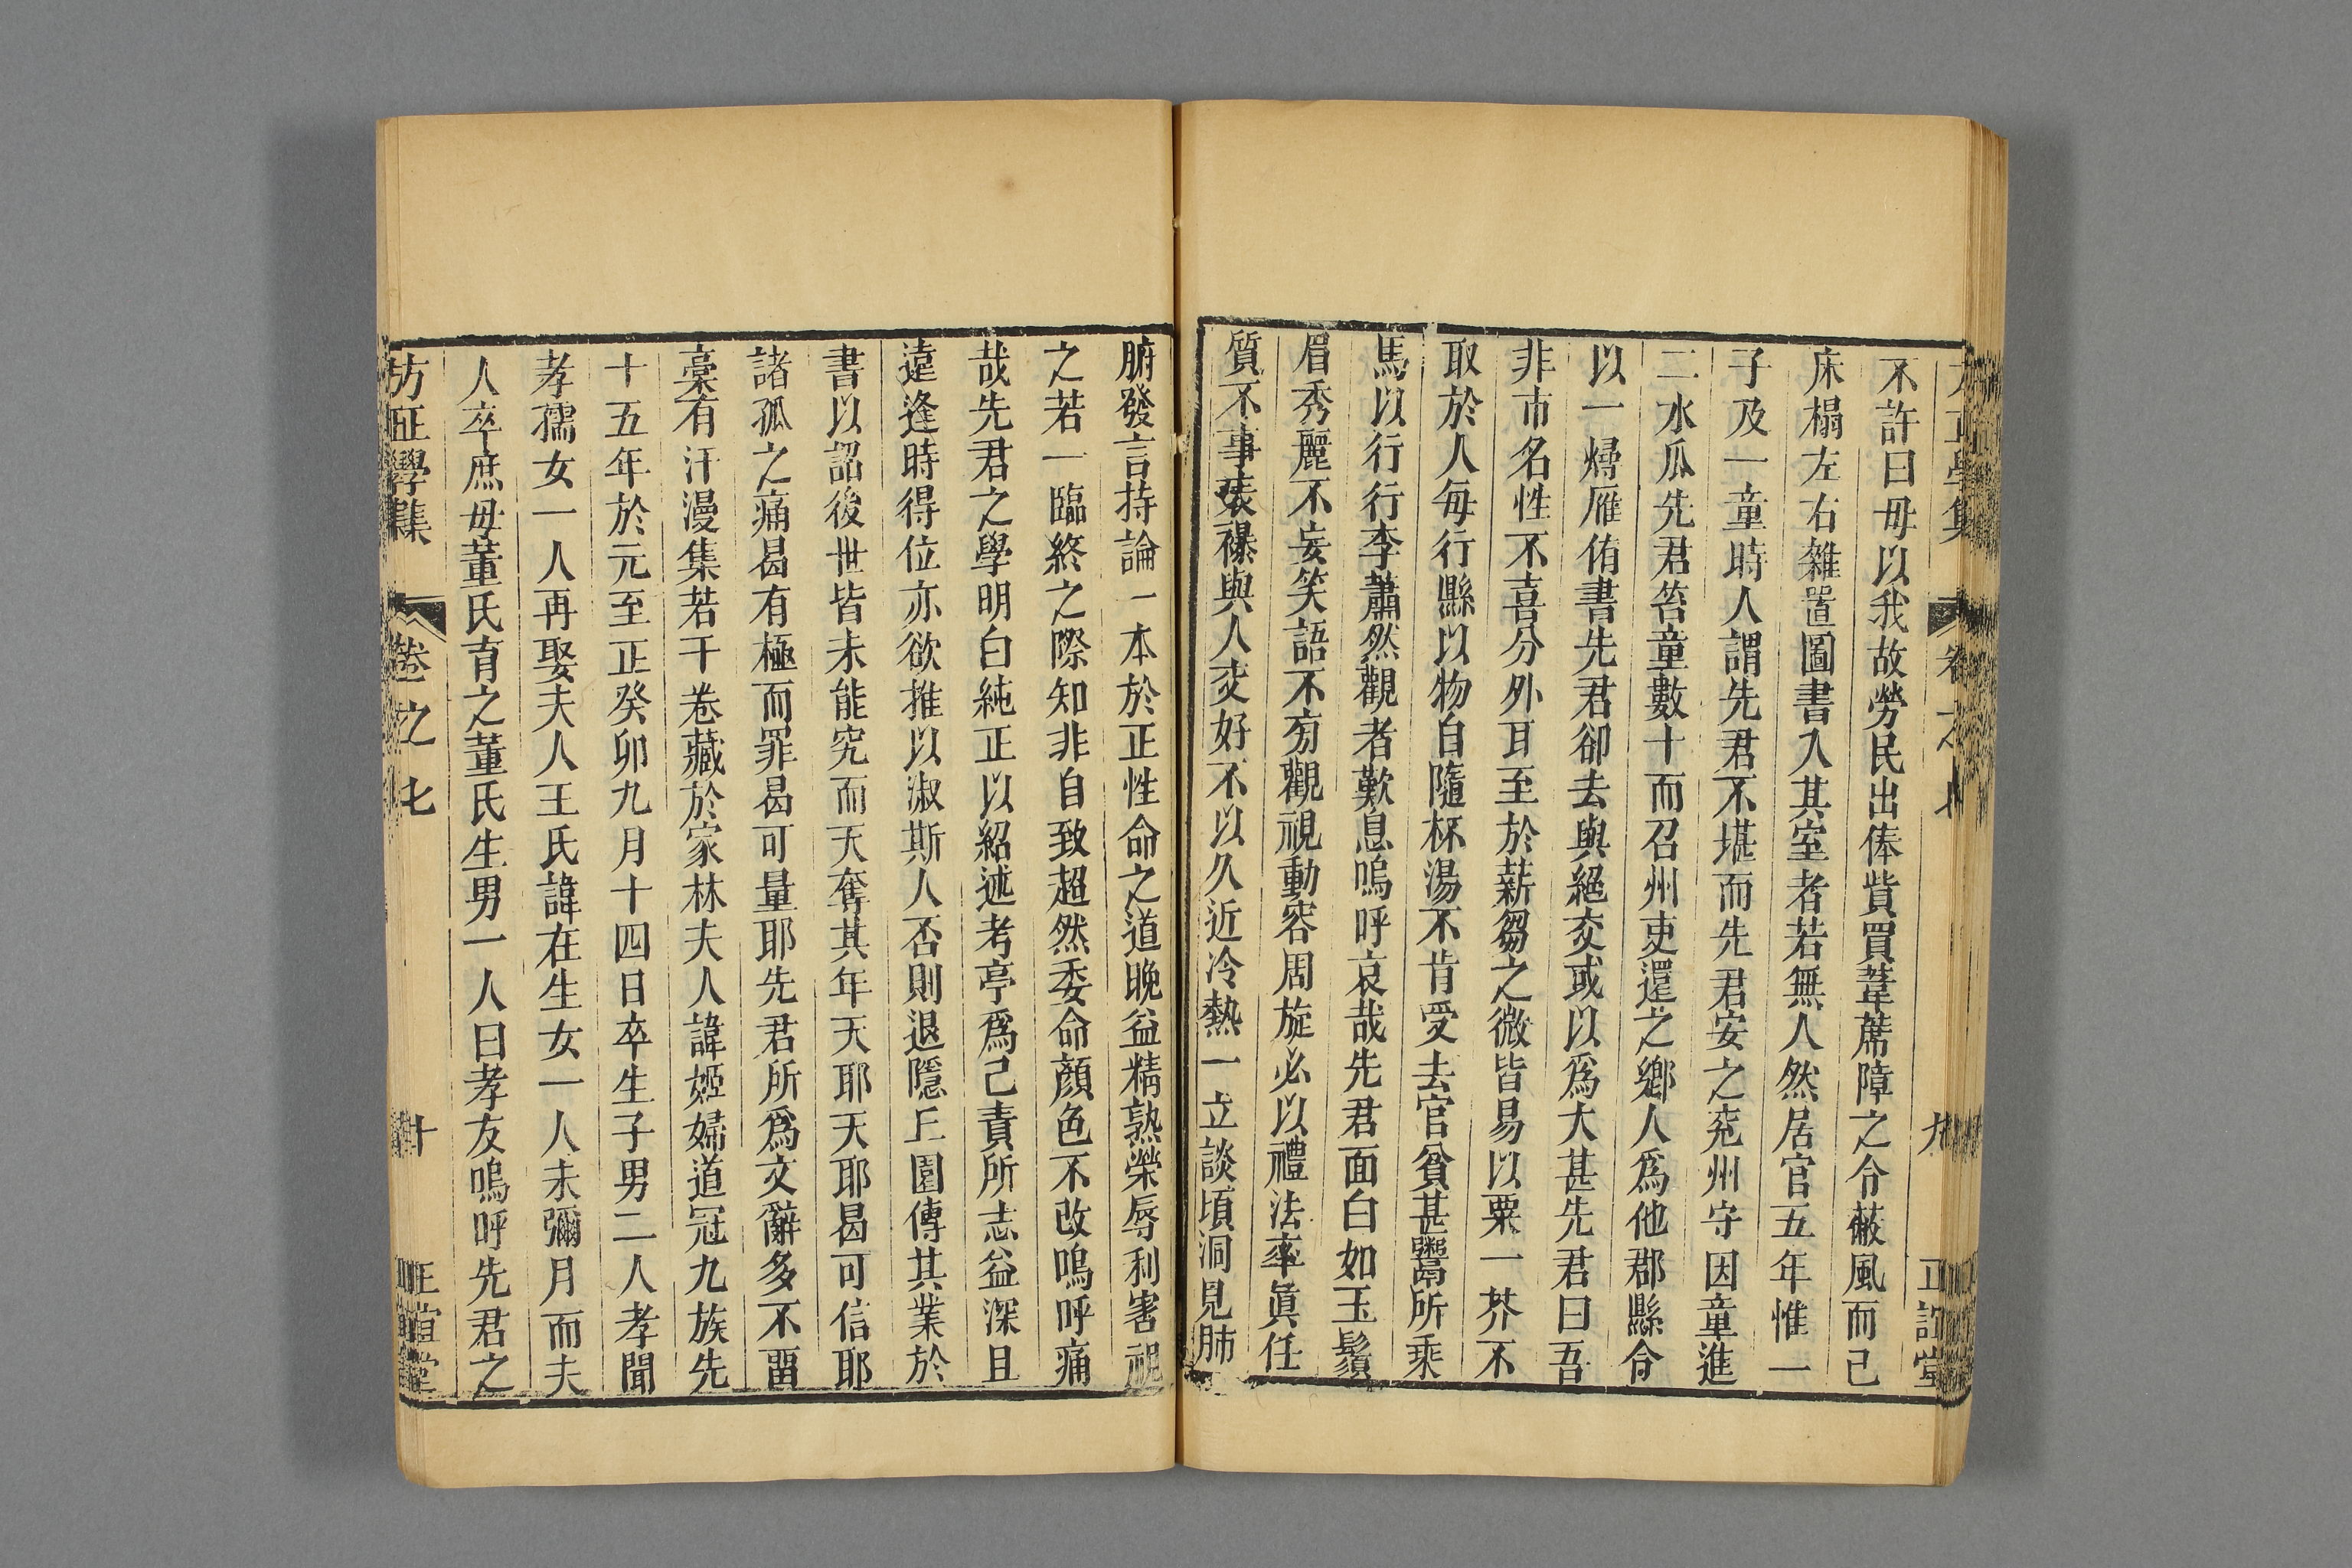 不許曰毋以我故勞民出俸貲買葦蓆障之令蔽風而已
床榻左右雜置圖書入其室者若無人然居官五年惟一
子及一童時人謂先君不堪而先君安之兖州守因童進
二水瓜先君笞童數十而召州吏還之鄉人爲他郡縣令
以一燖雁侑書先君卻去與絕交或以爲大甚先君曰吾
非市名性不喜分外耳至於薪芻之微皆易以粟一芥不
取於人每行縣以物自隨杯湯不肯受去官貧甚鬻所乘
馬以行行李蕭然觀者歎息嗚呼哀哉先君面白如玉鬚
眉秀麗不妄笑語不旁觀視動容周旋必以禮法率眞任
質不事表襮與人交好不以久近冷熱一立談頃洞見肺
腑發言持論一本於正性命之道晚益精熟榮辱利害視
之若一臨終之際知非自致超然委命顏色不改嗚呼痛
哉先君之學明白純正以紹述考亭爲己責所志益深且
遠逢時得位亦欲推以淑斯人否則退隱丘園傳其業於
書以詔後世皆未能究而天奪其年天耶天耶曷可信耶
諸孤之痛曷有極而罪曷可量耶先君所爲文辭多不留
稾有汗漫集若干卷藏於家林夫人諱姬婦道冠九族先
十五年於元至正癸卯九月十四日卒生子男二人孝聞
孝孺女一人再娶夫人王氏諱在生女一人未彌月而夫
人卒庶母董氏育之董氏生男一人曰孝友嗚呼先君之
方正學集 卷之七 十 正誼堂